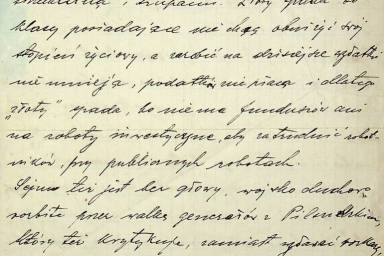 klasy posiadające nie chcą obniżyć swój
stopień życiowy, a zarobić na dzisiejsze wydatki
nie umieją, podatków nie płacą i dlatego
"złoty" spada, bo nie ma funduszów ani
na roboty inwestycyjne, aby zatrudnić robot-
ników, przy publicznych robotach.
Sejm też jest bez głowy, wojsko duchowo
rozbite przez walkę generałów z Piłsudskim,
który też krytykuje, zamiast